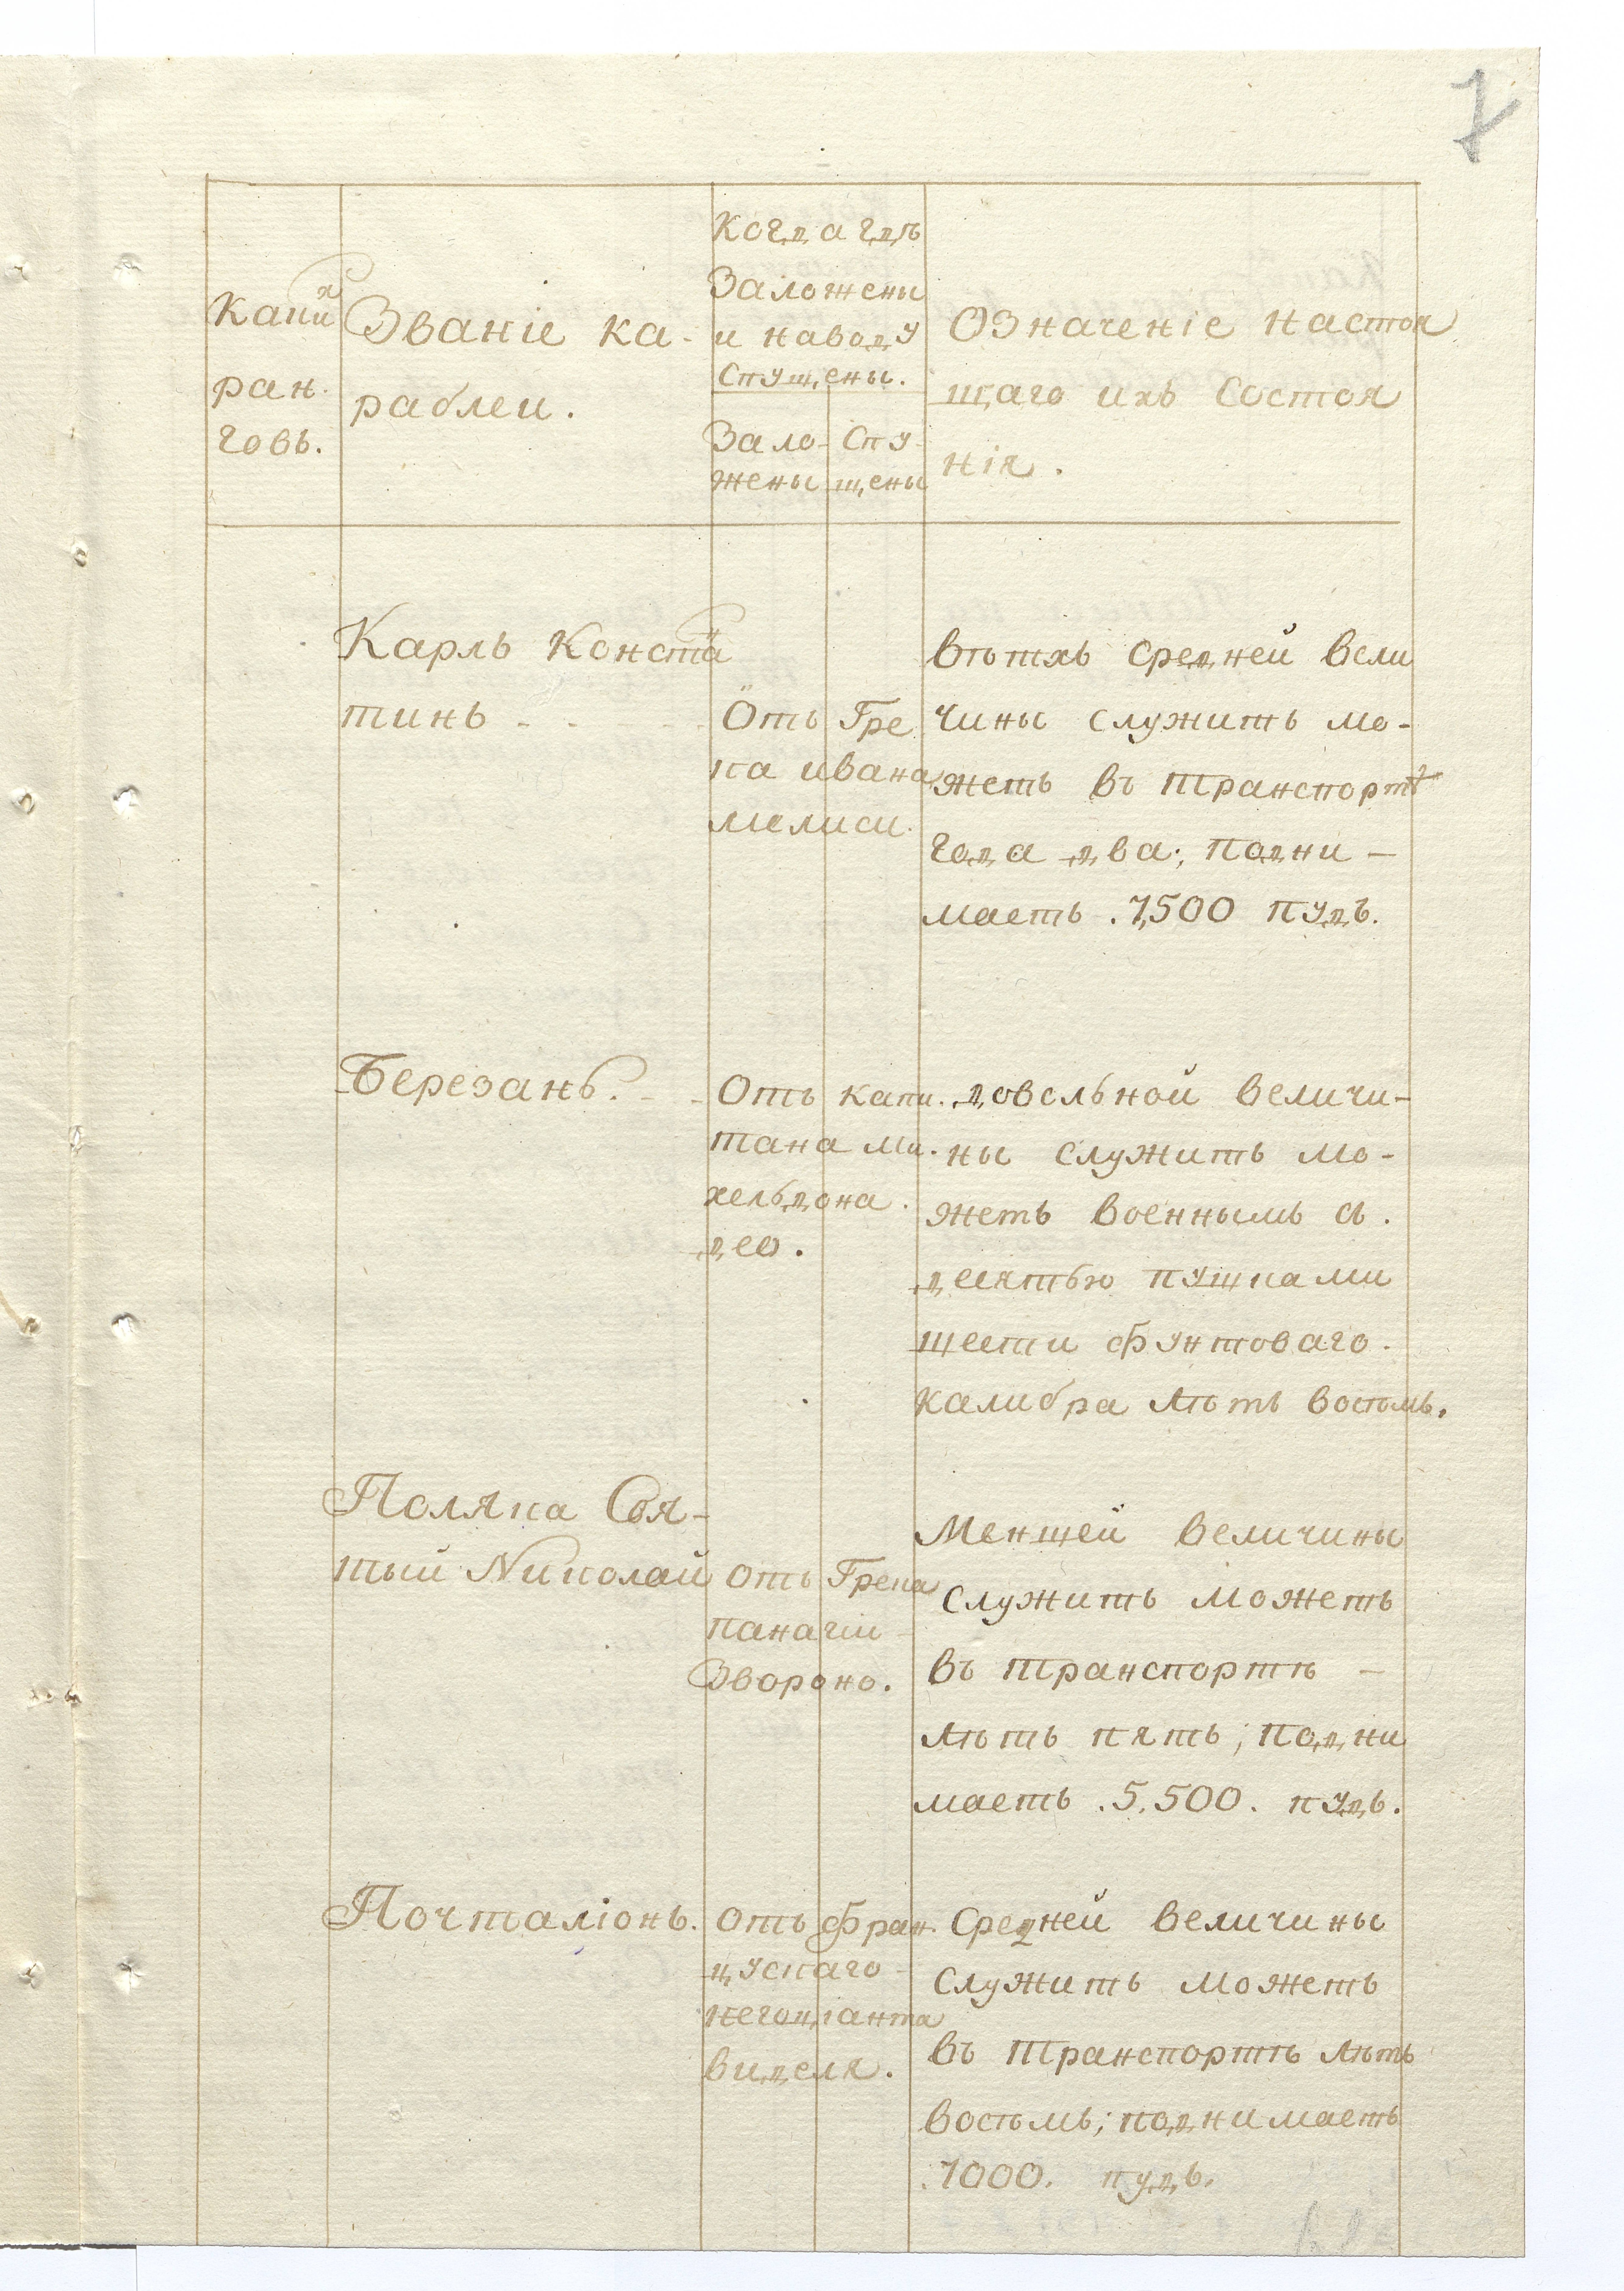 7
Какихъ
ран-
говъ.
Званіе ка-
раблеи.
Когда гдѣ
Заложены
и наводу
Спущены.
Зало-
жены
Спу-
щены
Означеніе настоя
щаго ихъ Состоя
нія.
Карлъ Конста
тинъ - - - -
Отъ Гре
ка ивана
мелиси.
вѣтхъ Средней вели
чины Служить мо-
жетъ въ транспортѣ
года два; подни-
маетъ .7,500 пудъ.
Березань. - -
Отъ капи-
тана ми-
хельдона-
део.
довольной величи-
ны Служить мо-
жетъ военнымъ съ.
десятью пушками
шести фунтоваго.
калибра лѣтъ восѣмь.
Поляка Свя-
тый Николай
отъ Грека
панагіи
Звороно.
Меншей величины
Служить можетъ
въ транспортѣ -
лѣтъ пять; подни
маетъ .5,500. пудъ.
Почталіонъ.
отъ фран-
цускаго
негоціанта
виделя.
Средней величины
Служить можетъ
въ транспортѣ лѣтъ
восѣмь; поднимаетъ
.7000. пудъ.